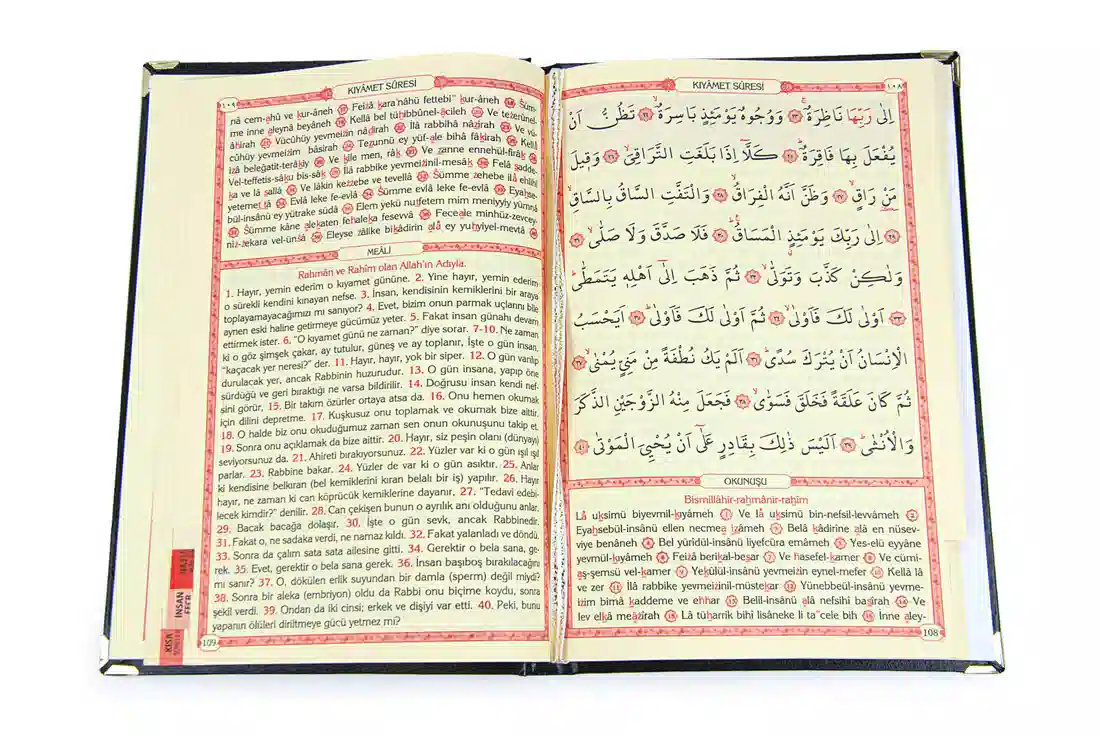 KIYÂMET SÛRESİ
١٠٨
اِلٰى رَبِّهَا نَاظِرَةٌۚ ﴿٢٣﴾ وَوُجُوهٌ يَوْمَئِذٍ بَاسِرَةٌۙ ﴿٢٤﴾ تَظُنُّ اَنْ
يُفْعَلَ بِهَا فَاقِرَةٌۜ ﴿٢٥﴾ كَلَّٓا اِذَا بَلَغَتِ التَّرَاقِيَۙ ﴿٢٦﴾ وَقِيلَ
مَنْ رَاقٍۙ ﴿٢٧﴾ وَظَنَّ اَنَّهُ الْفِرَاقُۙ ﴿٢٨﴾ وَالْتَفَّتِ السَّاقُ بِالسَّاقِۙ
﴿٢٩﴾ اِلٰى رَبِّكَ يَوْمَئِذٍ الْمَسَاقُۜ ﴿٣٠﴾ فَلَا صَدَّقَ وَلَا صَلّٰىۙ ﴿٣١﴾
وَلٰكِنْ كَذَّبَ وَتَوَلّٰىۙ ﴿٣٢﴾ ثُمَّ ذَهَبَ اِلٰٓى اَهْلِه۪ يَتَمَطّٰىۜ
﴿٣٣﴾ اَوْلٰى لَكَ فَاَوْلٰىۙ ﴿٣٤﴾ ثُمَّ اَوْلٰى لَكَ فَاَوْلٰىۜ ﴿٣٥﴾ اَيَحْسَبُ
الْاِنْسَانُ اَنْ يُتْرَكَ سُدًىۜ ﴿٣٦﴾ اَلَمْ يَكُ نُطْفَةً مِنْ مَنِيٍّ يُمْنٰىۙ ﴿٣٧﴾
ثُمَّ كَانَ عَلَقَةً فَخَلَقَ فَسَوّٰىۙ ﴿٣٨﴾ فَجَعَلَ مِنْهُ الزَّوْجَيْنِ الذَّكَرَ
وَالْاُنْثٰىۜ ﴿٣٩﴾ اَلَيْسَ ذٰلِكَ بِقَادِرٍ عَلٰٓى اَنْ يُحْيِيَ الْمَوْتٰى ﴿٤٠﴾
OKUNUŞU
Bismillâhir-rahmânir-rahîm
Lâ uksimü biyevmil-kıyâmeh 1 Ve lâ uksimü bin-nefsil-levvâmeh 2
Eyahsebül-insânü ellen necmea izâmeh 3 Belâ kâdirîne alâ en nüsev-
viye benâneh 4 Bel yürîdül-insânü liyefcüra emâmeh 5 Yes-elü eyyâne
yevmül-kıyâmeh 6 Feizâ berikal-besar 7 Ve hasefel-kamer 8 Ve cümi-
aş-şemsü vel-kamer 9 Yekûlül-insânü yevmeizin eynel-mefer 10 Kellâ lâ
ve zer 11 İlâ rabbike yevmeizinil-müstekar 12 Yünebbeül-insânü yevme-
izim bimâ kaddeme ve ehhar 13 Belil-insânü alâ nefsihî basîrah 14 Ve
lev elkâ meâzîrah 15 Lâ tüharrik bihî lisâneke li ta"cele bih 16 İnne aley-
108
KIYÂMET SÛRESİ
١٠٩
nâ cem-ahû ve kur-âneh 17 Feizâ kara'nâhü fettebi" kur-âneh 18 Süm-
me inne aleynâ beyâneh 19 Kellâ bel tühibbûnel-âcileh 20 Ve tezerûnel-
âhirah 21 Vücûhüy yevmeizin nâdirah 22 İlâ rabbihâ nâzirah 23 Ve vü-
cûhüy yevmeizim bâsirah 24 Tezunnü ey yüf-ale bihâ fâkirah 25 Kellâ
izâ beleğatit-terâkıy 26 Ve kîle men, râk 27 Ve zanne ennehül-firâk 28
Vel-teffetis-sâku bis-sâk 29 İlâ rabbike yevmeizinil-mesâk 30 Felâ sadde-
ka ve lâ sallâ 31 Ve lâkin kezzebe ve tevellâ 32 Sümme zehebe ilâ ehlihî
yetemettâ 33 Evlâ leke fe-evlâ 34 Sümme evlâ leke fe-evlâ 35 Eyahse-
bül-insânü ey yütrake südâ 36 Elem yekü nutfetem mim meniyyiy yümnâ
37 Sümme kâne alekaten fehaleka fesevvâ 38 Feceale minhüz-zevcey-
niz-zekara vel-ünsâ 39 Eleyse zâlike bikâdirin alâ ey yuhyiyel-mevtâ 40
MEÂLİ
Rahmân ve Rahîm olan Allah'ın Adıyla.
1. Hayır, yemin ederim o kıyamet gününe. 2. Yine hayır, yemin ederim
o sürekli kendini kınayan nefse. 3. İnsan, kendisinin kemiklerini bir araya
toplayamayacağımızı mı sanıyor? 4. Evet, bizim onun parmak uçlarını bile
aynen eski haline getirmeye gücümüz yeter. 5. Fakat insan günahı devam
ettirmek ister. 6. "O kıyamet günü ne zaman?" diye sorar. 7-10. Ne zaman
ki o göz şimşek çakar, ay tutulur, güneş ve ay toplanır, İşte o gün insan,
"kaçacak yer neresi?" der. 11. Hayır, hayır, yok bir siper. 12. O gün varılıp
durulacak yer, ancak Rabbinin huzurudur. 13. O gün insana, yapıp öne
sürdüğü ve geri bıraktığı ne varsa bildirilir. 14. Doğrusu insan kendi nef-
sini görür, 15. Bir takım özürler ortaya atsa da. 16. Onu hemen okumak
için dilini depretme. 17. Kuşkusuz onu toplamak ve okumak bize aittir.
18. O halde biz onu okuduğumuz zaman sen onun okunuşunu takip et.
19. Sonra onu açıklamak da bize aittir. 20. Hayır, siz peşin olanı (dünyayı)
seviyorsunuz da. 21. Ahireti bırakıyorsunuz. 22. Yüzler var ki o gün ışıl ışıl
parlar. 23. Rabbine bakar. 24. Yüzler de var ki o gün asıktır. 25. Anlar
ki kendisine belkıran (bel kemiklerini kıran belalı bir iş) yapılır. 26. Hayır
hayır, ne zaman ki can köprücük kemiklerine dayanır. 27. "Tedavi edebi-
lecek kimdir?" denilir. 28. Can çekişen bunun o ayrılık anı olduğunu anlar.
29. Bacak bacağa dolaşır. 30. İşte o gün sevk, ancak Rabbinedir.
31. Fakat o, ne sadaka verdi, ne namaz kıldı. 32. Fakat yalanladı ve döndü.
33. Sonra da çalım sata sata ailesine gitti. 34. Gerektir o bela sana, ge-
rek. 35. Evet, gerektir o bela sana gerek. 36. İnsan başıboş bırakılacağını
mı sanır? 37. O, dökülen erlik suyundan bir damla (sperm) değil miydi?
38. Sonra bir aleka (embriyon) oldu da Rabbi onu biçime koydu, sonra
şekil verdi. 39. Ondan da iki cinsi; erkek ve dişiyi var etti. 40. Peki, bunu
yapanın ölüleri diriltmeye gücü yetmez mi?
109
İNSAN
FECR
KISA